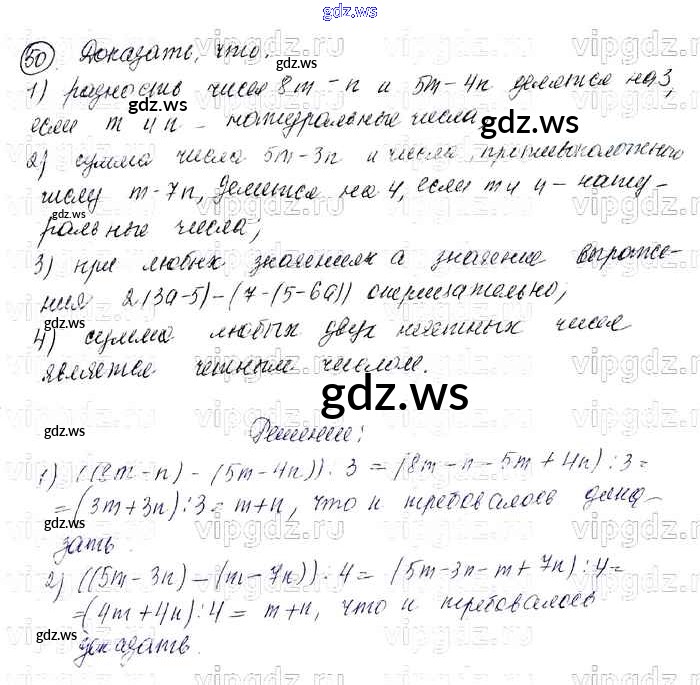 gdz.ws
50. Доказать, что:
1) разность чисел 8m - n и 5m - 4n делятся на 3,
если m и n - натуральные числа
2) сумма числа 5m-3n и числа, противоположного
числу m-7n, делится на 4, если m и n - нату-
ральные числа;
3) при любых значениях a значение выраже-
ния 2(3a-5)-(7-(5-6a)) отрицательно;
4) сумма любых двух нечетных чисел
является четным числом.
gdz.ws
Решение:
1) ((8m-n) - (5m-4n)) : 3 = (8m-n-5m+4n) : 3 =
= (3m+3n) : 3 = m+n, что и требовалось дока-
зать.
2) ((5m-3n) - (m-7n)) : 4 = (5m-3n-m+7n) : 4 =
= (4m+4n) : 4 = m+n, что и требовалось
доказать.